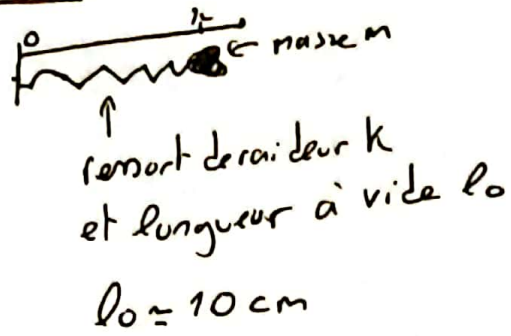 0
← masse m
ressort de raideur k
et longueur à vide l₀
l₀ ≃ 10 cm